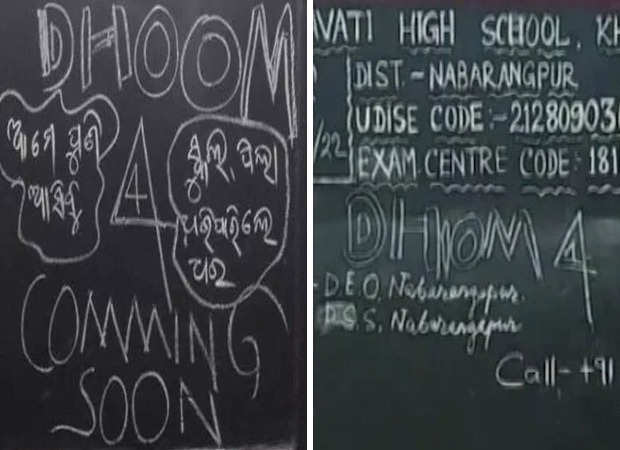 DHOOM
4
ଆମେ ପୁଣି
ଆସିବୁ
ପିଲା
ଧରିପାରିଲେ
ଧର
COMMING
SOON
VATI HIGH SCHOOL, KH
DIST.-NABARANGPUR
UDISE CODE:-21280903
/22
EXAM. CENTRE CODE: 181
DHOOM 4
D.E.O, Nabarangpur.
S, Nabarangpur
Call-+91